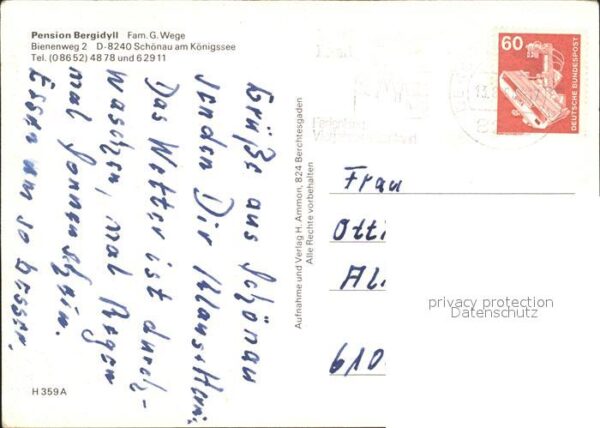 Pension Bergidyll Fam. G. Wege
Bienenweg 2 D-8240 Schönau am Königssee
Tel. (08652) 4878 und 62911
Grüße aus Schönau
senden Dir
Das Wetter ist durch-
waschen, mal Regen
mal Sonnenschein.
Essen um so besser.
H 359 A
Aufnahme und Verlag H. Ammon, 824 Berchtesgaden
Alle Rechte vorbehalten
60
DEUTSCHE BUNDESPOST
Frau
Otti
Al
610
privacy protection
Datenschutz